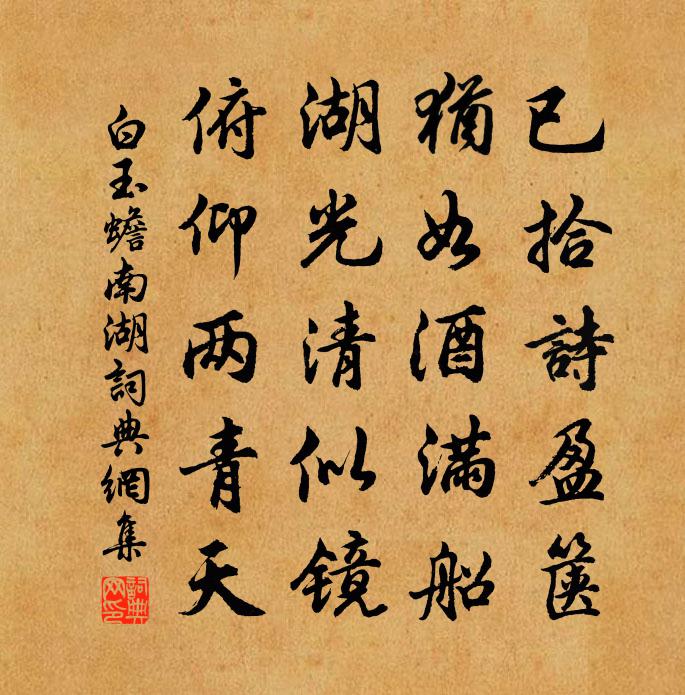 已拾詩盈篋
猶如酒滿船
湖光清似镜
俯仰两青天
白玉蟾南湖詞典網集
詞典网印